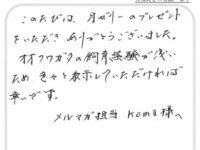 このたびは、月ゼリーのプレゼント
をいただき ありがとうございました。
オオクワガタの飼育経験が浅い
ため 色々と教示していただければ
幸いです。
メルマガ担当 KOMI 様へ